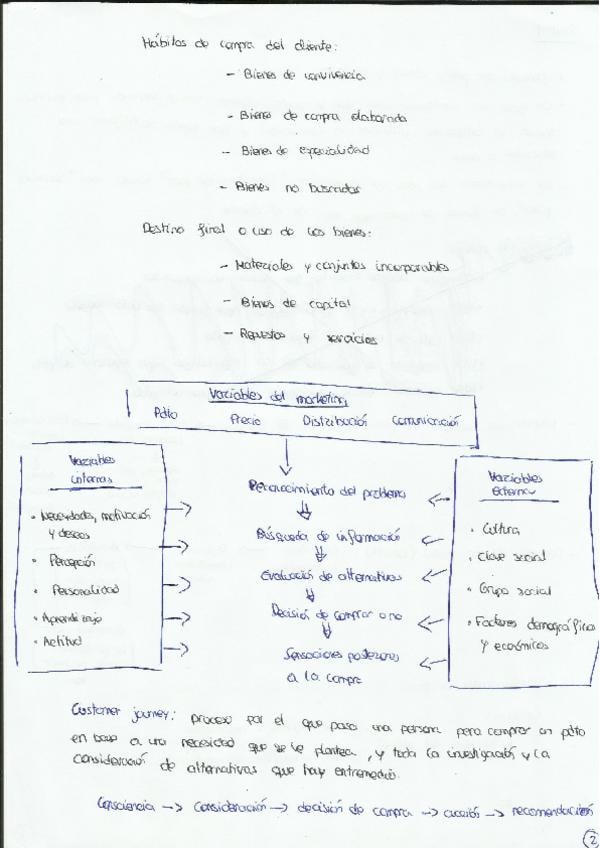 Hábitos de compra del cliente:
- Bienes de convivencia
- Bienes de compra elaborada
- Bienes de especialidad
- Bienes no buscados
Destino final o uso de los bienes:
- Materiales y conjuntos incorporables
- Bienes de capital
- Repuestos y servicios
Variables del marketing
Pdto Precio Distribución Comunicación
Variables internas
• Necesidades, motivación
y deseos
• Percepción
• Personalidad
• Aprendizaje
• Actitud
Reconocimiento del problema
Búsqueda de información
Evaluación de alternativas
Decisión de comprar o no
Sensaciones posteriores
a la compra
Variables
externas
• Cultura
• Clase social
• Grupo social
• Factores demográficos
y económicos
Customer journey: proceso por el que pasa una persona para comprar un pdto
en base a una necesidad que se le plantea, y toda la investigación y la
consideración de alternativas que hay entremedio.
Consciencia -> consideración -> decisión de compra -> acción -> recomendación
2